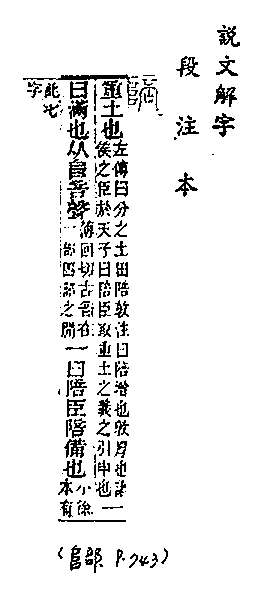 說文解字
段注本
陪
重土也
左傳曰分之土田陪敦注曰陪增也敦厚也諸
侯之臣於天子曰陪臣取重土之義之引申也
一
曰滿也从𨸏咅聲
薄回切古音在
一部四部之閒
一曰陪臣陪備也
小徐
本有
此七
字
(𨸏部 P.743)